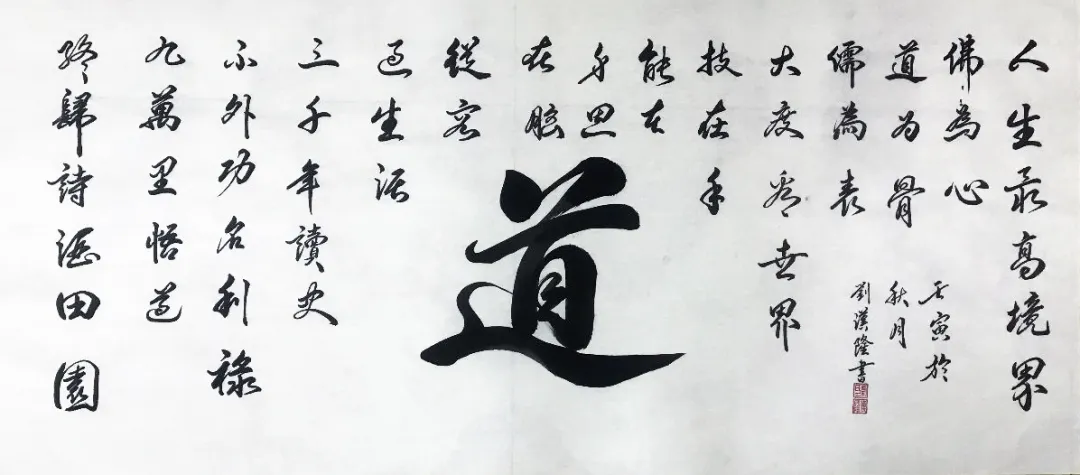 人生最高境界
佛為心
道为骨
儒為表
大度看世界
技在手
能在
身思
在腦
從容
過生活
三千年讀史
不外功名利祿
九萬里悟道
終歸詩酒田園
道
壬寅於
秋月
劉漢隆書